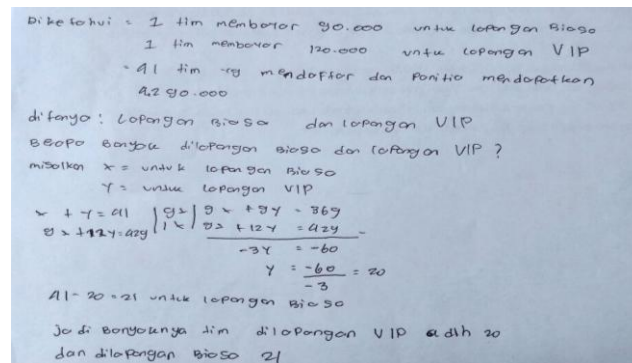 Diketahui = 1 tim membayar 90.000 untuk lapangan Biasa
1 tim membayar 120.000 untuk lapangan VIP
- 41 tim yg mendaftar dan Panitia mendapatkan
4.290.000
ditanya : Lapangan Biasa dan lapangan VIP
Beapa Banyak dilapangan Biasa dan lapangan VIP ?
misalkan x = untuk lapangan Biasa
Y = untuk lapangan VIP
x + y = 41 | 9x | 9x + 9y = 369
9x + 12y = 429 | 1x | 9x + 12y = 429 -
-3y = -60
Y = -60/-3 = 20
41 - 20 = 21 untuk lapangan Biasa
Jadi Banyaknya tim dilapangan VIP adlh 20
dan dilapangan Biasa 21